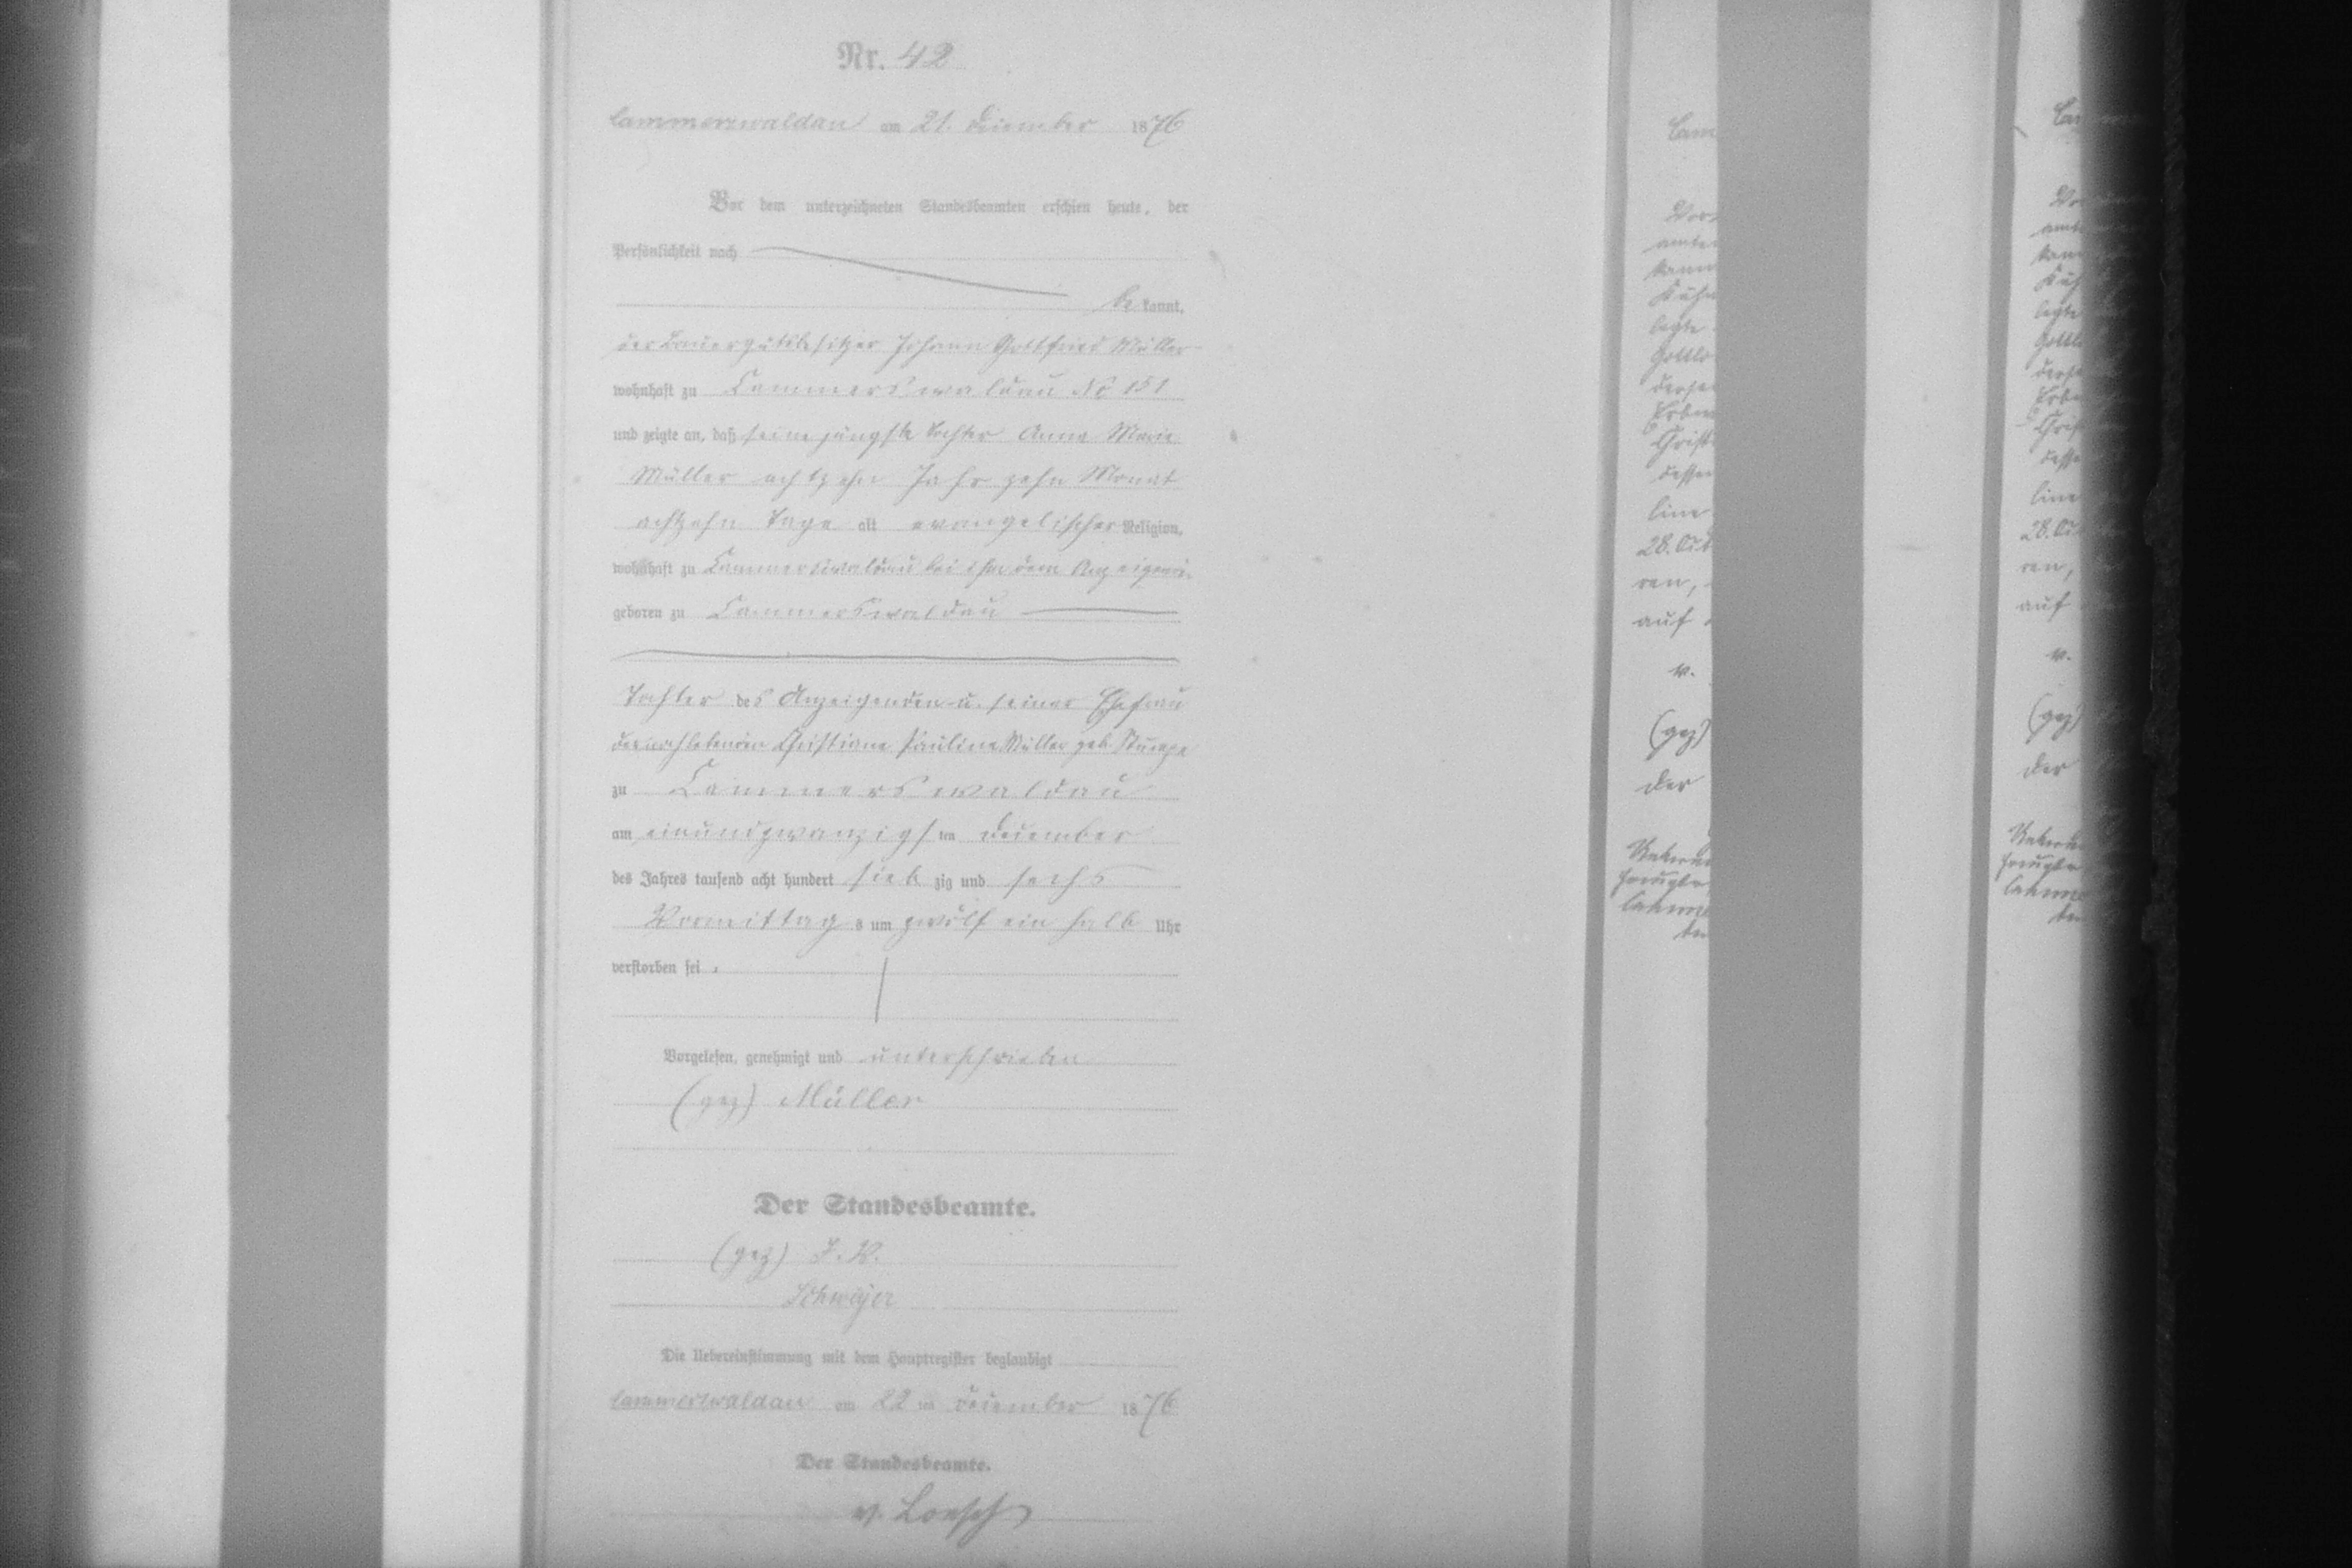 Nr. 42
Cammerswaldau am 21. December 1876
Vor dem unterzeichneten Standesbeamten erschien heute, der
Persönlichkeit nach
be kannt,
der Bauergutsbesitzer Johann Gottfried Müller
wohnhaft zu Cammerswaldau No 151
und zeigte an, daß seine jüngste Tochter Anna Marie
Müller achtzehn Jahr zehn Monat
achtzehn Tage alt evangelischer Religion,
wohnhaft zu Cammerswaldau bei ihm dem Anzeigenden
geboren zu Cammerswaldau
Tochter des Anzeigenden u. seiner Ehefrau
der noch lebenden Christiane Pauline Müller geb. Stumpe
zu Cammerswaldau
am einundzwanzigsten December
des Jahres tausend acht hundert sieb zig und sechs
Vormittag s um zwölf ein halb Uhr
verstorben sei.
Vorgelesen, genehmigt und unterschrieben
(gez) Müller
Der Standesbeamte.
(gez) J. V.
Die Uebereinstimmung mit dem Hauptregister beglaubigt
Cammerswaldau am 22 ten December 1876
Der Standesbeamte.
v. Loesch
Cam
legte
Gottlo
Christ
dessen
line
28. Oct
ren,
auf
v.
(gez)
der
legte
line
28. Oc
ren,
auf
v.
(gez)
der